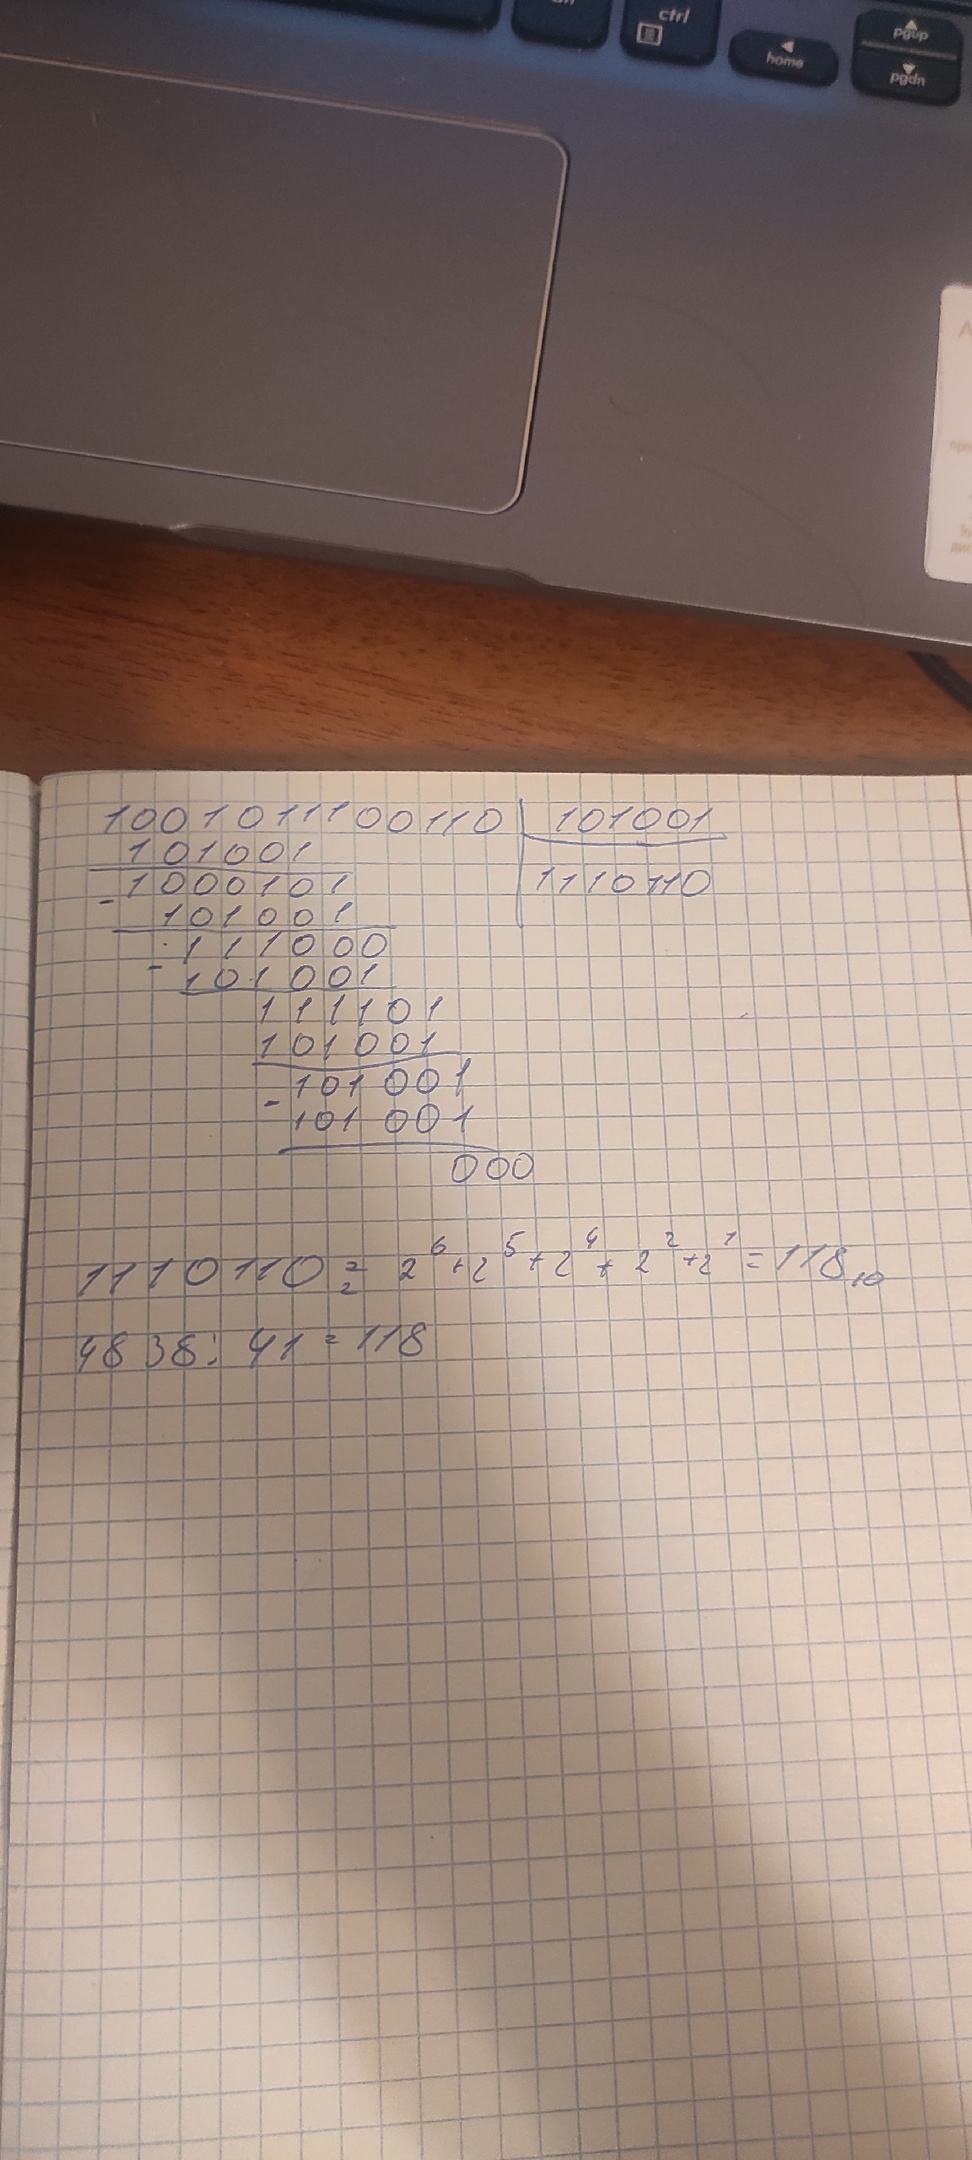 ctrl
home
pgup
pgdn
1001011100110 101001
101001
1000101 1110110
- 101001
111000
- 101001
111101
101001
101001
- 101001
000
1110110₂ = 2⁶+2⁵+2⁴+2²+2¹=118₁₀
4838:41=118